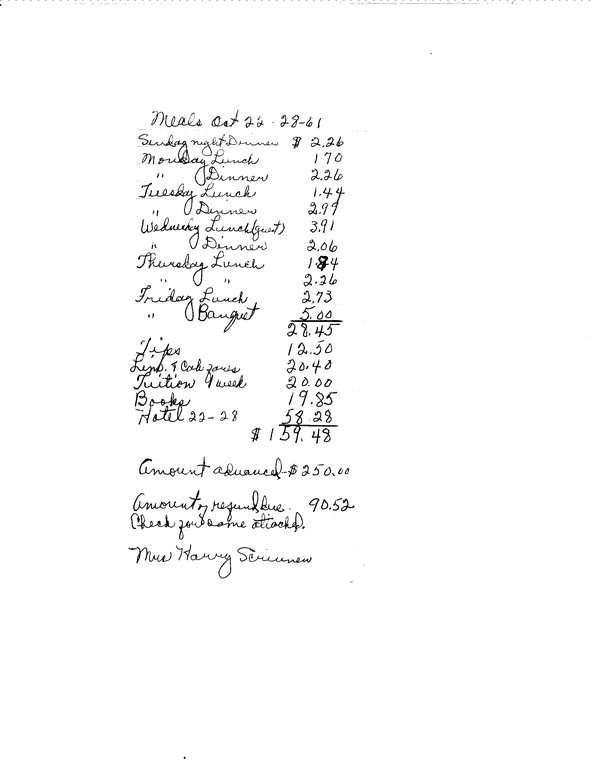 Meals Oct 22-28-61
Sunday night Dinner $ 2.26
Monday Lunch 1 70
" Dinner 2.26
Tuesday Lunch 1.44
" Dinner 2.99
Wednesday Lunch (guest) 3.91
" Dinner 2.06
Thursday Lunch 1.84
" " 2.26
Friday Lunch 2.73
" Banquet 5.00
28.45
Tips 12.50
Limo. & Cab fares 20.40
Tuition 1 week 20.00
Books 19.85
Hotel 22-28 58.28
$ 159.48
Amount advanced-$250.00
Amount of refund due. 90.52
Check for same attached.
Mrs Harry